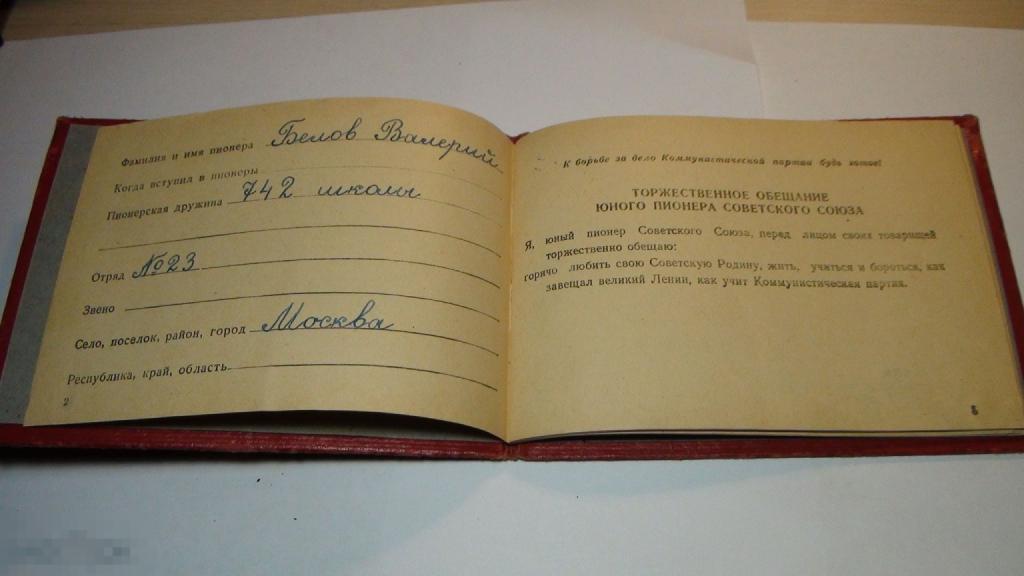 Фамилия и имя пионера Белов Валерий
Когда вступил в пионеры
Пионерская дружина 742 школы
Отряд №23
Звено
Село, поселок, район, город Москва
Республика, край, область
2
К борьбе за дело Коммунистической партии будь готов!
ТОРЖЕСТВЕННОЕ ОБЕЩАНИЕ
ЮНОГО ПИОНЕРА СОВЕТСКОГО СОЮЗА
Я, юный пионер Советского Союза, перед лицом своих товарищей
торжественно обещаю:
горячо любить свою Советскую Родину, жить, учиться и бороться, как
завещал великий Ленин, как учит Коммунистическая партия.